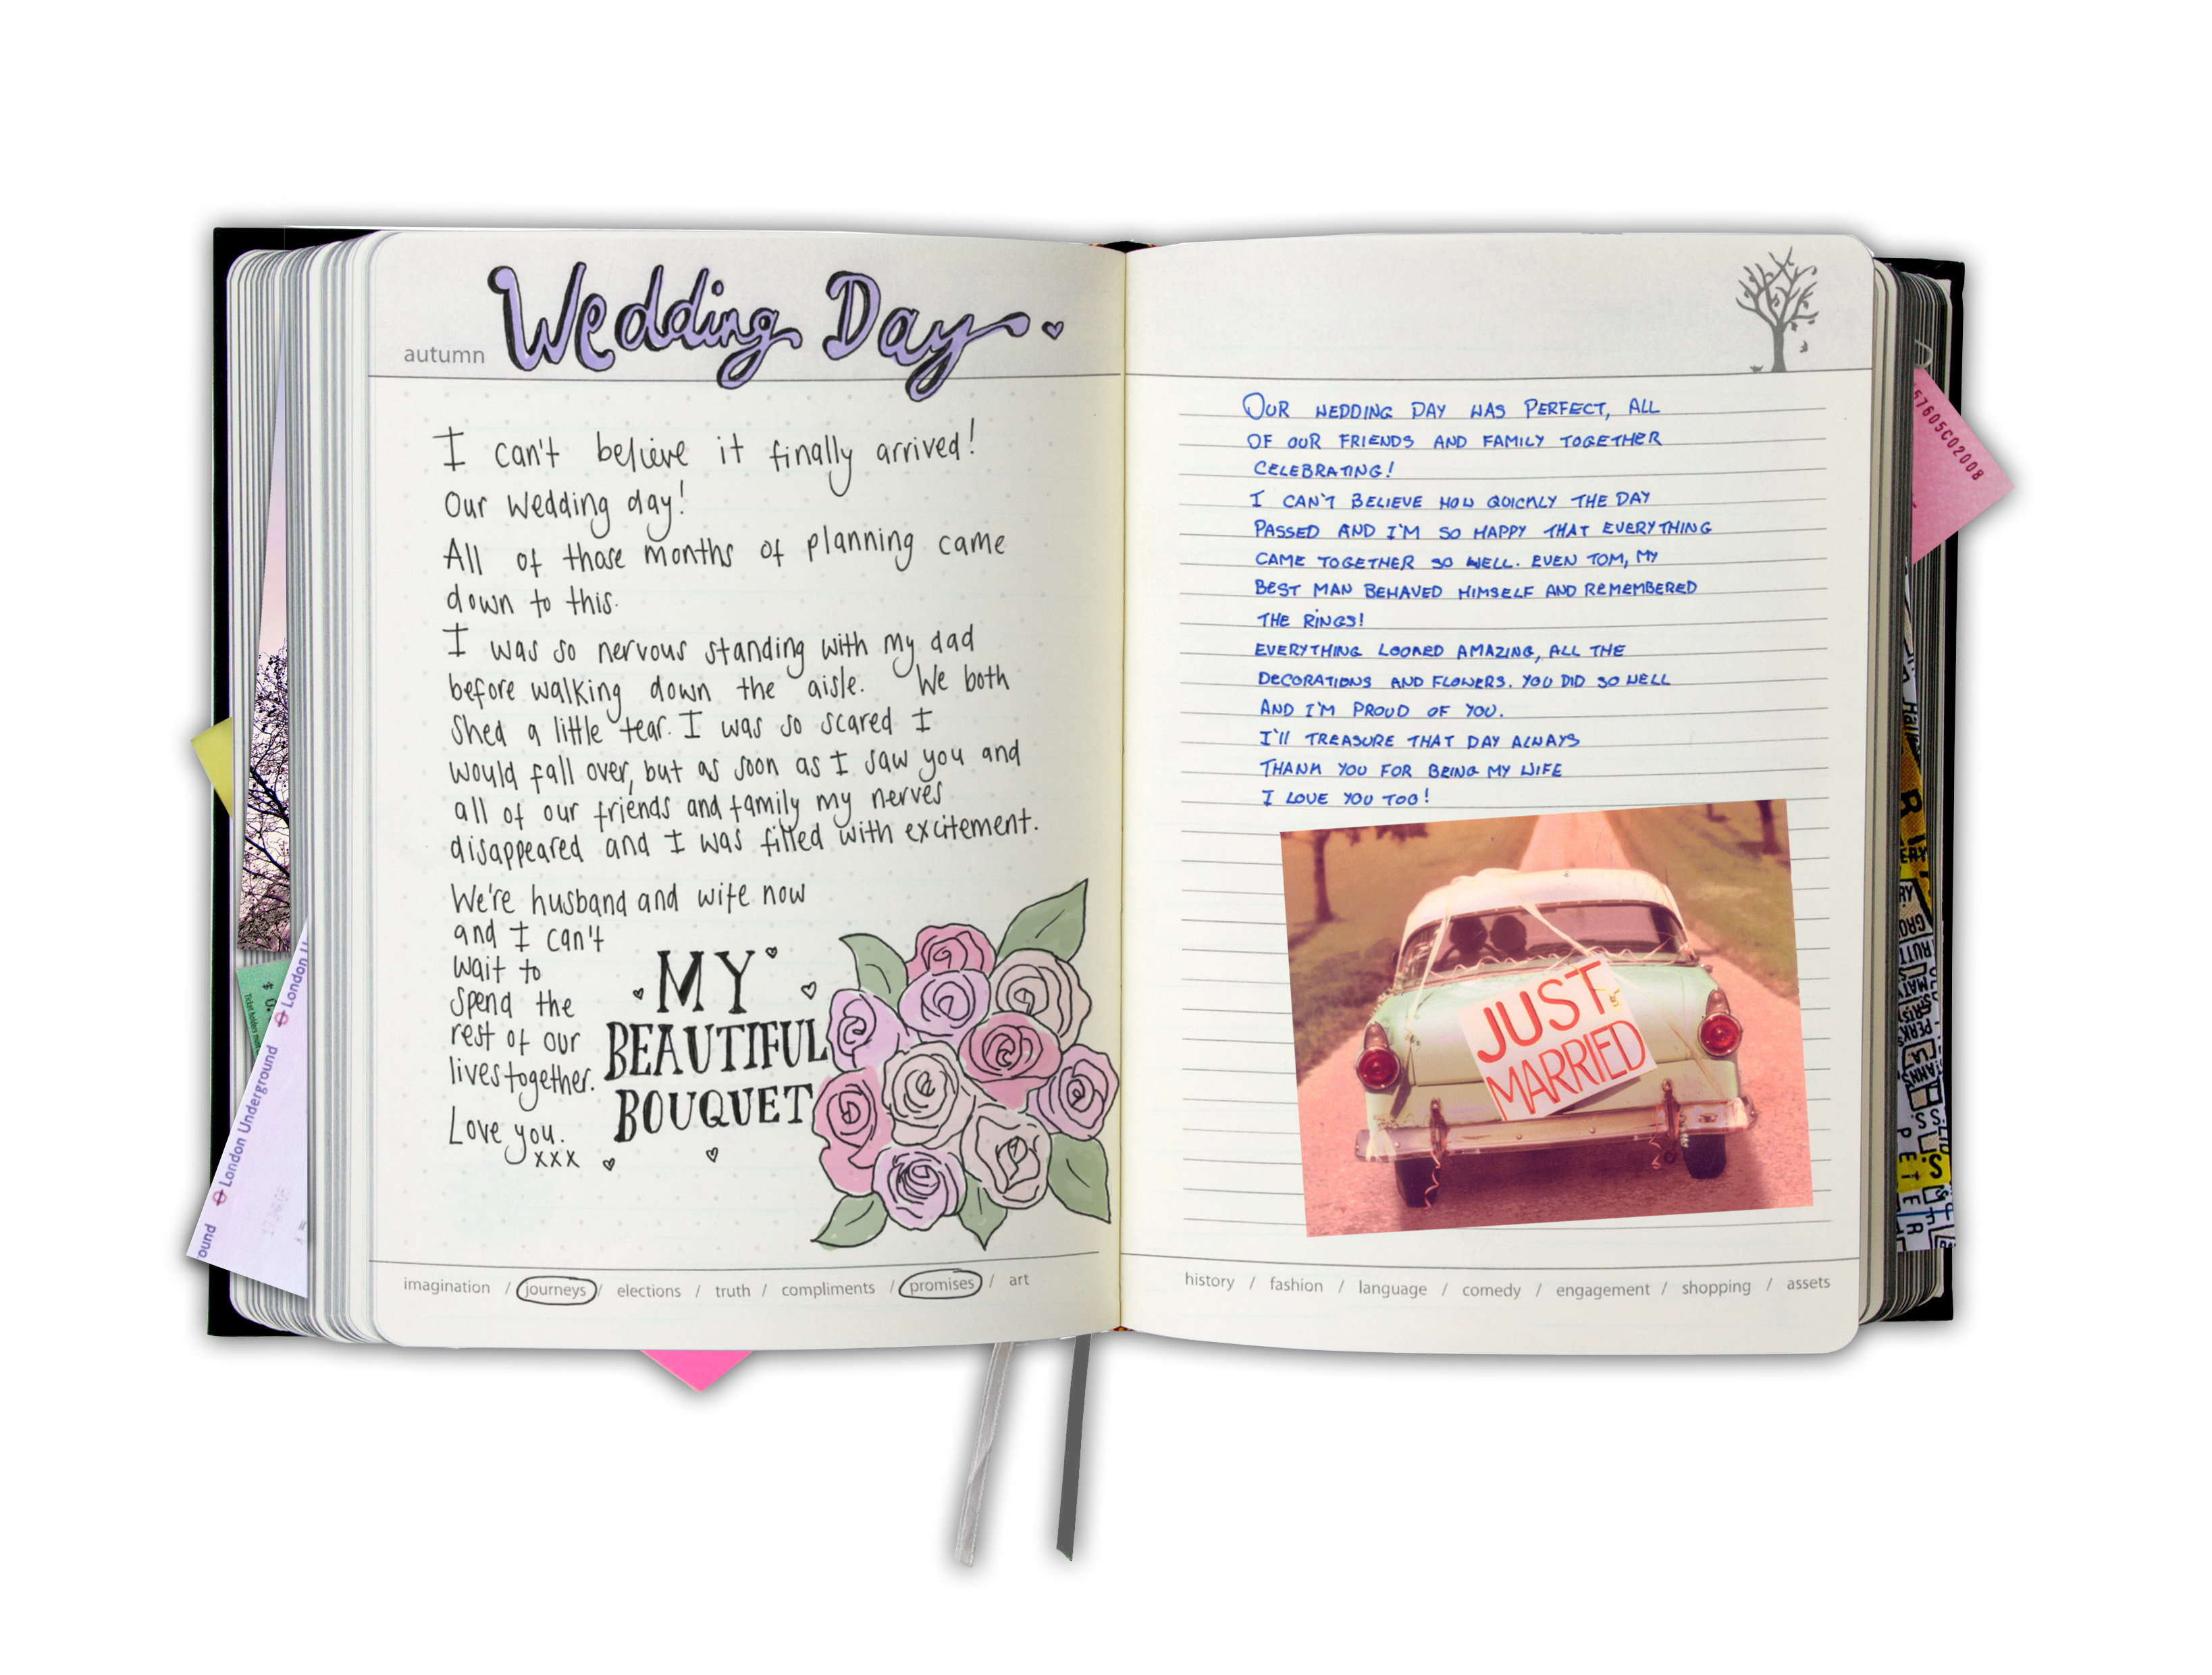 autumn
Wedding Day
I can't believe it finally arrived!
Our Wedding day!
All of those months of planning came
down to this.
I was so nervous standing with my dad
before walking down the aisle. We both
shed a little tear. I was so scared I
would fall over, but as soon as I saw you and
all of our friends and family my nerves
disappeared and I was filled with excitement.
We're husband and wife now
and I can't
wait to
spend the
rest of our
lives together.
Love you.
xxx
MY
BEAUTIFUL
BOUQUET
imagination / journeys / elections / truth / compliments / promises / art
OUR WEDDING DAY WAS PERFECT, ALL
OF OUR FRIENDS AND FAMILY TOGETHER
CELEBRATING!
I CAN'T BELIEVE HOW QUICKLY THE DAY
PASSED AND I'M SO HAPPY THAT EVERYTHING
CAME TOGETHER SO WELL. EVEN TOM, MY
BEST MAN BEHAVED HIMSELF AND REMEMBERED
THE RINGS!
EVERYTHING LOOKED AMAZING, ALL THE
DECORATIONS AND FLOWERS. YOU DID SO WELL
AND I'M PROUD OF YOU.
I'll TREASURE THAT DAY ALWAYS
THANK YOU FOR BEING MY WIFE
I LOVE YOU TOO!
JUST
MARRIED
history / fashion / language / comedy / engagement / shopping / assets
London Underground
London
ound
57605C02008
PETER